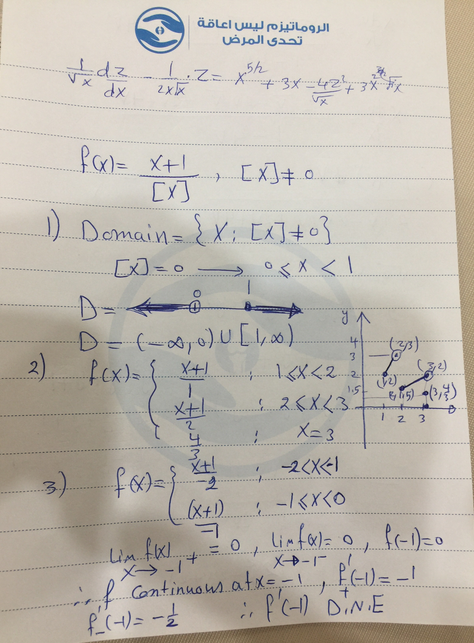 الروماتيزم ليس اعاقة
تحدى المرض
1/√x dz/dx - 1/(2x√x) · z = x^(5/2) + 3x - 4z²/√x
f(x) = (x+1)/[x] , [x] ≠ 0
1) Domain = {x : [x] ≠ 0}
[x] = 0 → 0 ≤ x < 1
D = 0 1
D = (-∞, 0) ∪ [1, ∞)
2) f(x) = { (x+1)/1 ; 1 ≤ x < 2
(x+1)/2 ; 2 ≤ x < 3
4/3 ; x = 3
y 4 3 2 1.5 1 2 3 (2,3) (1,2) (3,2) (2,1.5) (3, 4/3)
3) f(x) = { (x+1)/-2 ; -2 < x < -1
(x+1)/-1 ; -1 ≤ x < 0
lim f(x) x → -1⁺ = 0 , lim f(x) x → -1⁻ = 0 , f(-1) = 0
∴ f continuous at x = -1 , f'₊(-1) = -1
f'₋(-1) = -1/2 ∴ f'(-1) D.N.E